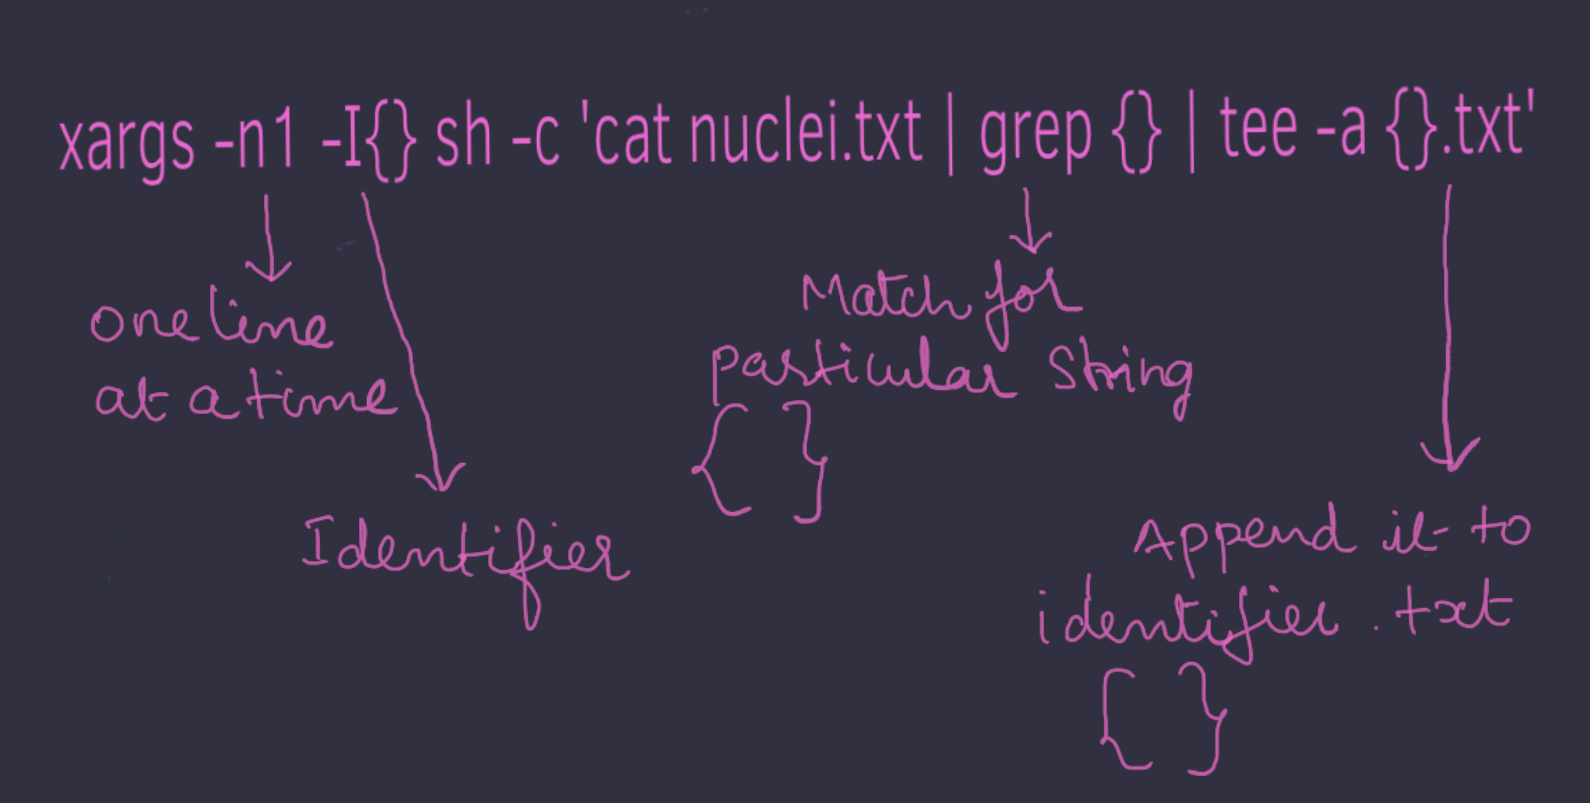 xargs -n1 -I{} sh -c 'cat nuclei.txt | grep {} | tee -a {}.txt'
one line
at a time
Identifier
Match for
particular string
{ }
Append it to
identifier.txt
{ }